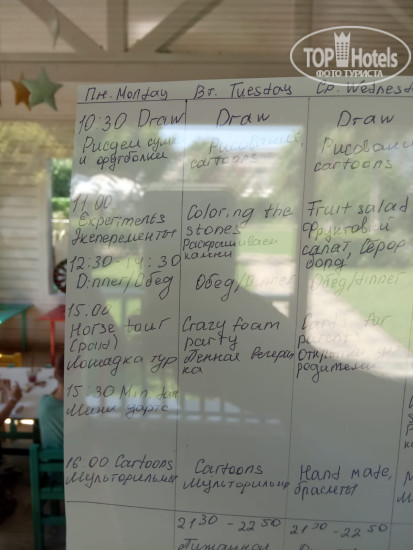 TOP Hotels
ФОТО ТУРИСТА
Пн. Monday
Вт. Tuesday
Ср. Wednesd
10:30 Draw
Рисуем сумк
и футболки
Draw
cartoons
Draw
Рисовани
cartoons
11.00
Experiments
Эксперементы
Coloring the
stones
Раскрашиваем
камни
Fruit salad
фруктовый
салат,
12:30-14:30
Dinner/Обед
Обед/Dinner
Обед/dinner
15.00
Horse tour
(paid)
Лошадка тур
Crazy foam
party
Пенная вечерин
ка
родители
15:30 Mini
Мини
16:00 Cartoons
Мультфильмы
Cartoons
Мультфильмы
Hand made,
браслеты
21 30 - 22 50
Пижамная
21 30 - 22 50